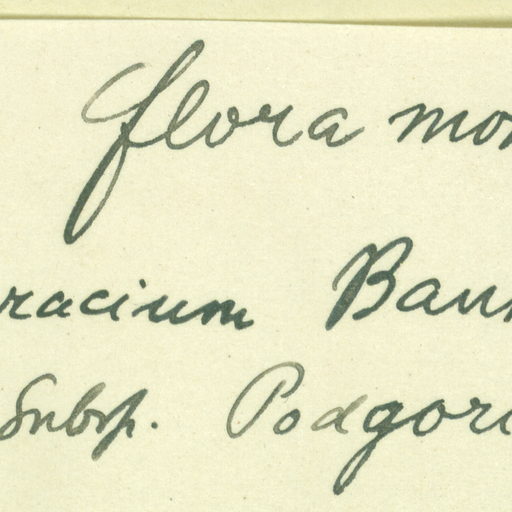 flora mon
racium Bau
Subsp. Podgor